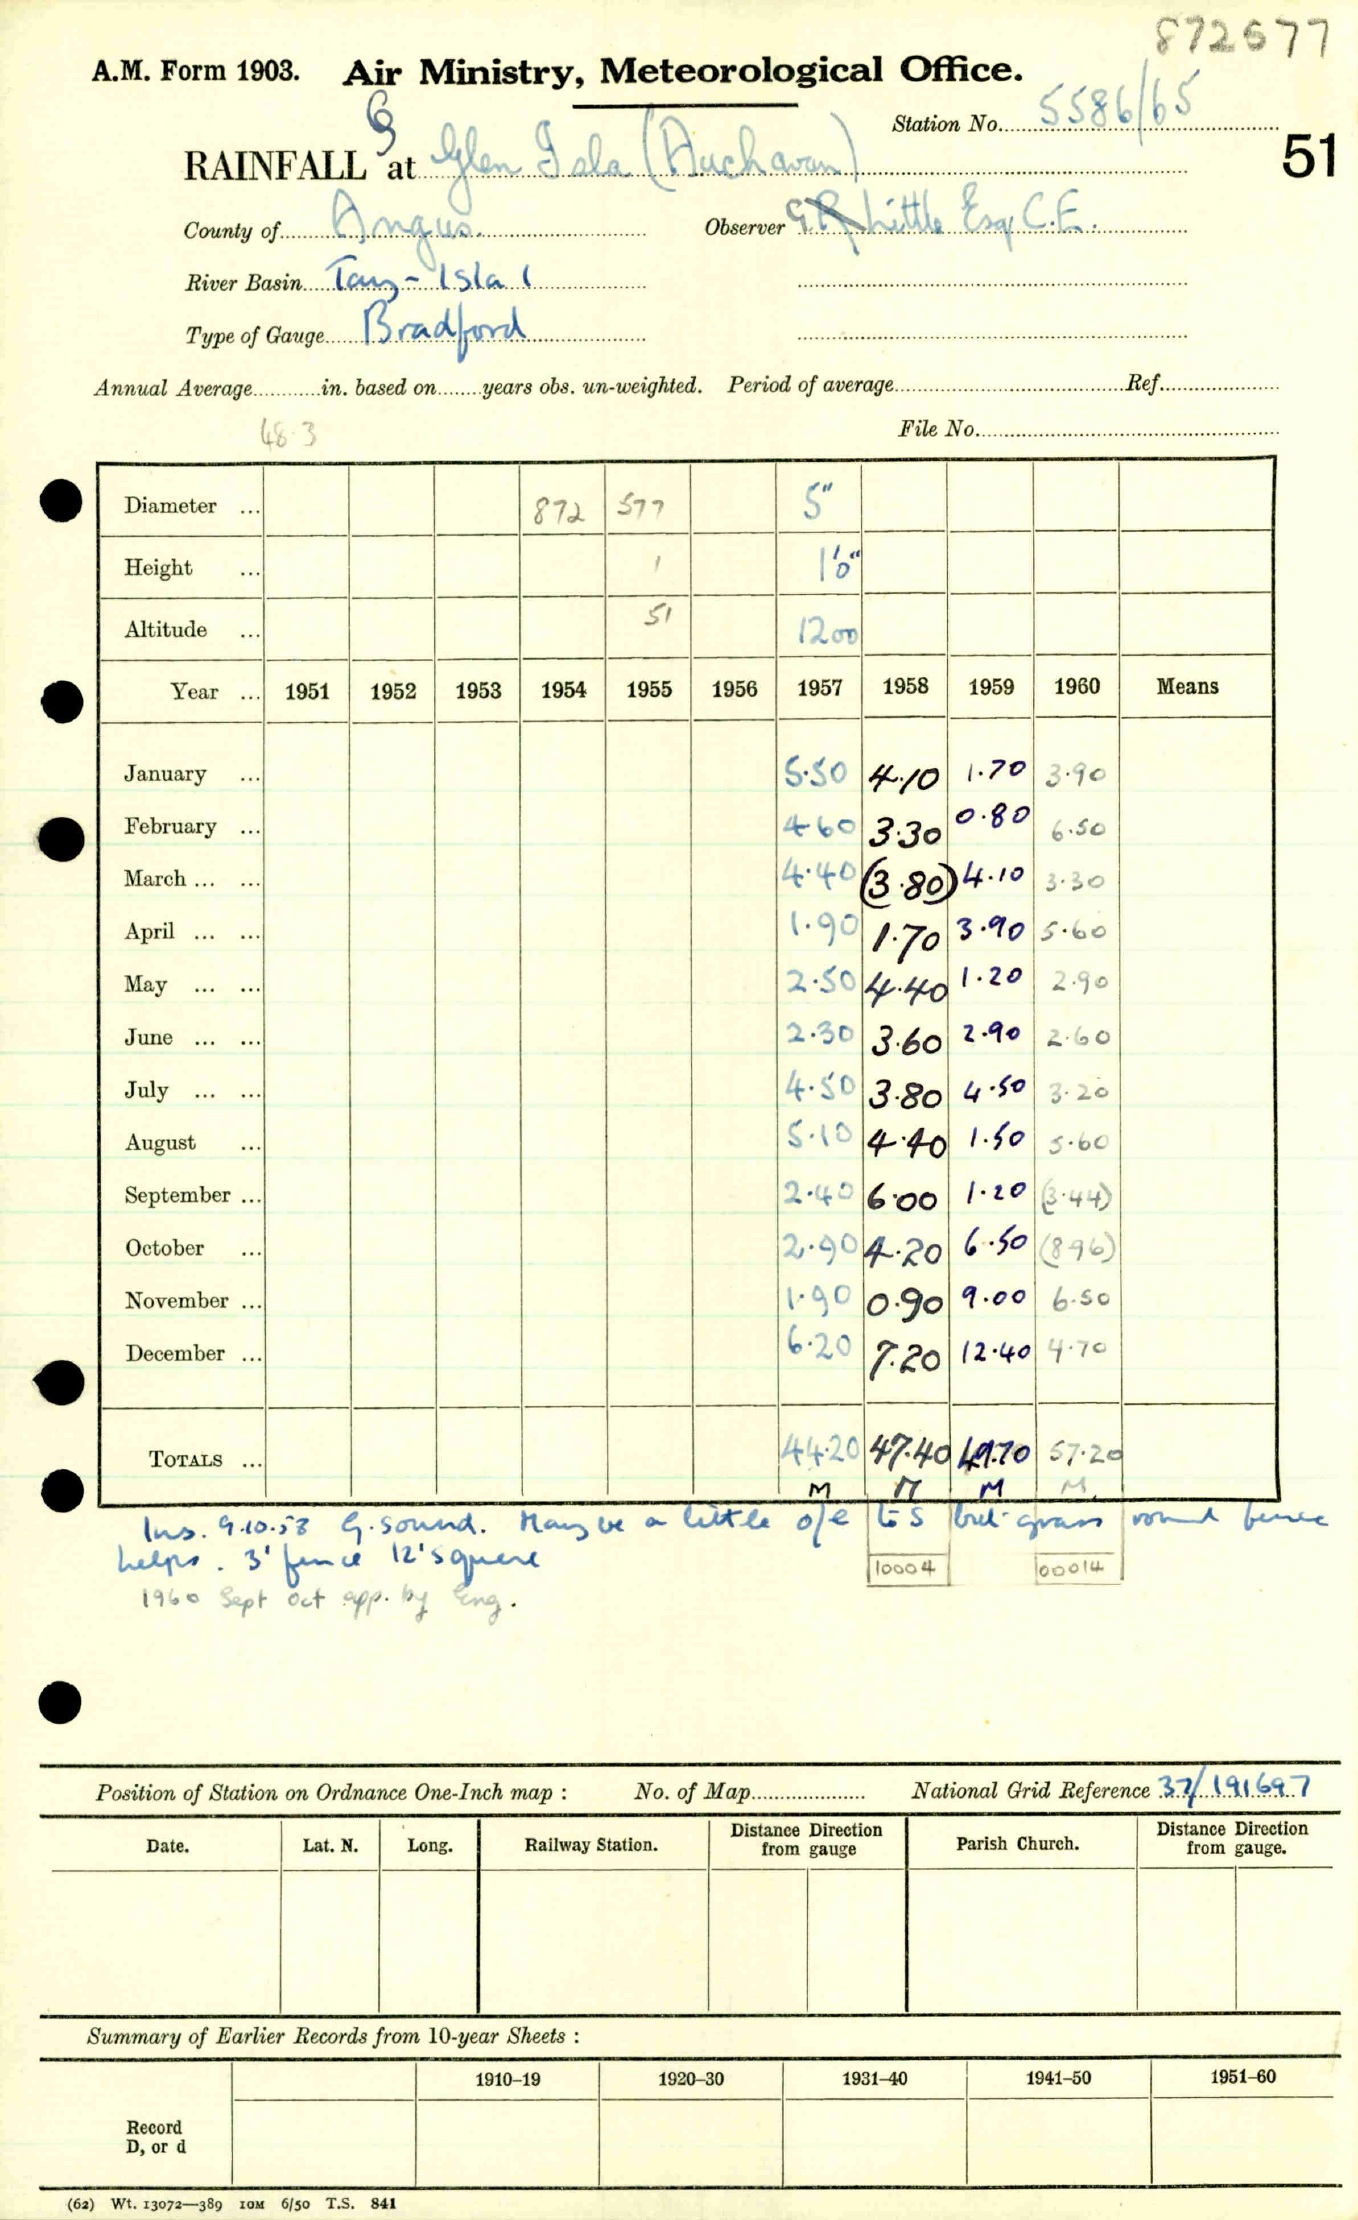 872577
A.M. Form 1903. Air Ministry, Meteorological Office.
Station No. 5586/65
51
RAINFALL at Glen Isla (Auchavan)
County of Angus. Observer G.R. Little Esq. C.E.
River Basin Tay - Isla 1
Type of Gauge Bradford
Annual Average............in. based on........years obs. un-weighted. Period of average........ Ref........
48.3 File No.
Diameter ... 872 577 5"
Height ... 1 1'0"
Altitude ... 51 1200
Year ... 1951 1952 1953 1954 1955 1956 1957 1958 1959 1960 Means
January ... 5.50 4.10 1.70 3.90
February ... 4.60 3.30 0.80 6.50
March ... ... 4.40 (3.80) 4.10 3.30
April ... ... 1.90 1.70 3.90 5.60
May ... ... 2.50 4.40 1.20 2.90
June ... ... 2.30 3.60 2.90 2.60
July ... ... 4.50 3.80 4.50 3.20
August ... 5.10 4.40 1.50 5.60
September ... 2.40 6.00 1.20 (3.44)
October ... 2.90 4.20 6.50 (8.96)
November ... 1.90 0.90 9.00 6.50
December ... 6.20 7.20 12.40 4.70
TOTALS ... 44.20 47.40 49.70 57.20
M M M M
Ins. 9.10.58 G. sound. May be a little o/e to S but grass round fence
helps. 3' fence 12' square
10004 00014
1960 Sept Oct app. by Eng.
Position of Station on Ordnance One-Inch map : No. of Map........ National Grid Reference 37/191697
Date. Lat. N. Long. Railway Station. Distance Direction from gauge Parish Church. Distance Direction from gauge.
Summary of Earlier Records from 10-year Sheets :
1910–19 1920–30 1931–40 1941–50 1951–60
Record
D, or d
(62) Wt. 13072—389 10M 6/50 T.S. 841